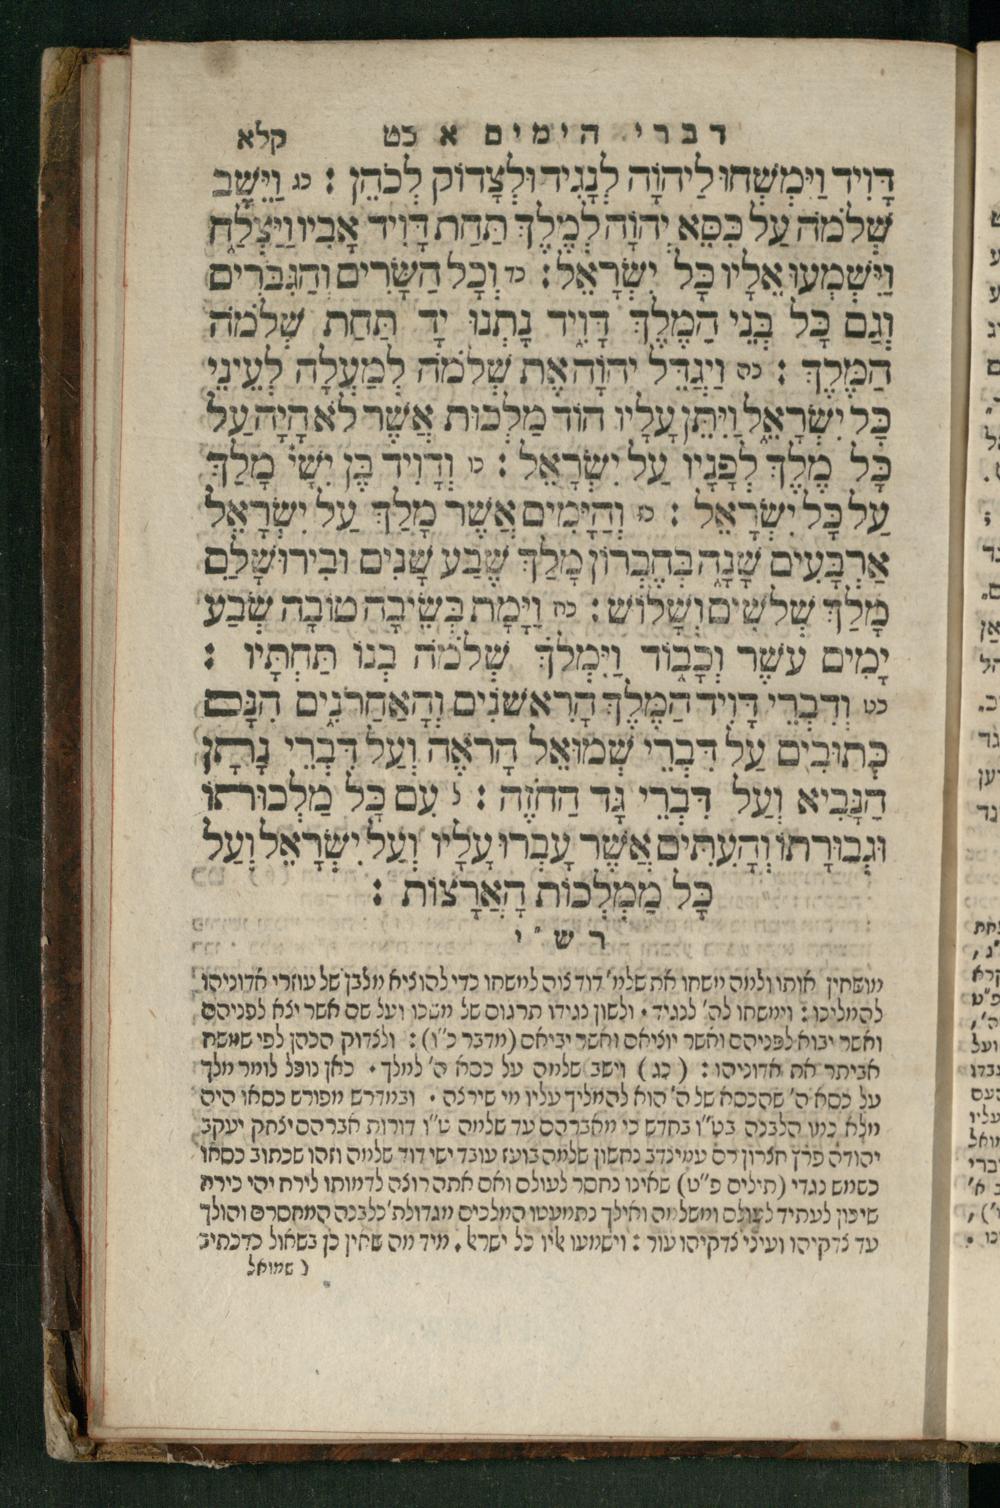 דברי הימים א כט קלא
דָּוִיד וַיִּמְשְׁחוּ לַיהוָֹה לְנָגִיד וּלְצָדוֹק לְכֹהֵן : כג וַיֵּשֶׁב
שְׁלֹמֹה עַל כִּסֵּא יְהוָֹה לְמֶלֶךְ תַּחַת דָּוִיד אָבִיו וַיַּצְלַח
וַיִּשְׁמְעוּ אֵלָיו כָּל יִשְׂרָאֵל : כד וְכָל הַשָּׂרִים וְהַגִּבֹּרִים
וְגַם כָּל בְּנֵי הַמֶּלֶךְ דָּוִיד נָתְנוּ יָד תַּחַת שְׁלֹמֹה
הַמֶּלֶךְ : כה וַיְגַדֵּל יְהוָֹה אֶת שְׁלֹמֹה לְמַעְלָה לְעֵינֵי
כָּל יִשְׂרָאֵל וַיִּתֵּן עָלָיו הוֹד מַלְכוּת אֲשֶׁר לֹא הָיָה עַל
כָּל מֶלֶךְ לְפָנָיו עַל יִשְׂרָאֵל : כו וְדָוִיד בֶּן יִשָׁי מָלַךְ
עַל כָּל יִשְׂרָאֵל : כז וְהַיָּמִים אֲשֶׁר מָלַךְ עַל יִשְׂרָאֵל
אַרְבָּעִים שָׁנָה בְּחֶבְרוֹן מָלַךְ שֶׁבַע שָׁנִים וּבִירוּשָׁלִַם
מָלַךְ שְׁלֹשִׁים וְשָׁלוֹשׁ : כח וַיָּמָת בְּשֵׂיבָה טוֹבָה שְׂבַע
יָמִים עֹשֶׁר וְכָבוֹד וַיִּמְלֹךְ שְׁלֹמֹה בְנוֹ תַּחְתָּיו :
כט וְדִבְרֵי דָּוִיד הַמֶּלֶךְ הָרִאשֹׁנִים וְהָאַחֲרֹנִים הִנָּם
כְּתוּבִים עַל דִּבְרֵי שְׁמוּאֵל הָרֹאֶה וְעַל דִּבְרֵי נָתָן
הַנָּבִיא וְעַל דִּבְרֵי גָּד הַחֹזֶה : ל עִם כָּל מַלְכוּתוֹ
וּגְבוּרָתוֹ וְהָעִתִּים אֲשֶׁר עָבְרוּ עָלָיו וְעַל יִשְׂרָאֵל וְעַל
כָּל מַמְלְכוֹת הָאֲרָצוֹת :
רש״י
מושחין אותו ולמה משחו את שלמ' דוד צוה למשחו כדי להוציא מלבן של עוזרי אדוניהו
להמליכו : וימשחו לה' לנגיד . ולשון נגידו תרגום של משכו ועל שם אשר יצא לפניהם
ואשר יבוא לפניהם ואשר יוציאם ואשר יביאם (מדבר כ״ז) : ולצדוק הכהן לפי שמשח
אביתר את אדוניהו : (כג) וישב שלמה על כסא ה' למלך . כאן נופל לומר מלך
על כסא ה' שהכסא של ה' הוא להמליך עליו מי שירצה . ובמדרש מפורש כסאו היה
מלא כמו הלבנה בט״ו בחדש כי מאברהם עד שלמה ט״ו דורות אברהם יצחק יעקב
יהודה פרץ חצרון רם עמינדב נחשון שלמה בועז עובד ישי דוד שלמה וזהו שכתוב כסאו
כשמש נגדי (תילים פ״ט) שאינו נחסר לעולם ואם אתה רוצה לדמותו לירח יהי כירח
שיכון לעתיד לעולם ומשלמה ואילך נתמעטו המלכים מגדולת' כלבנה המחסרת והולך
עד צדקיהו ועיני צדקיהו עור : וישמעו אליו כל ישראל . מיד מה שאין כן בשאול כדכתיב
(שמואל